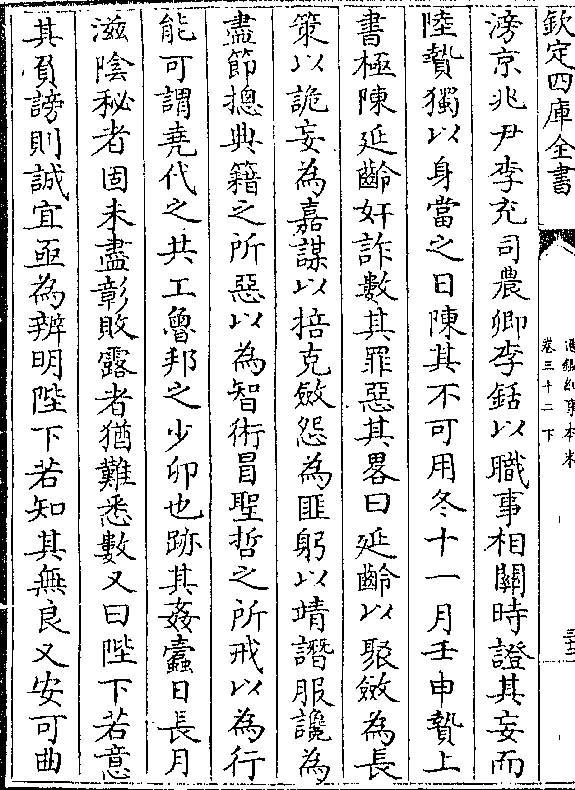 欽定四庫全書
通鑑紀事本末
卷三十二下
滂京兆尹李充司農卿李銛以職事相關時證其妄而
陸贄獨以身當之日陳其不可用冬十一月壬申贄上
書極陳延齡奸詐數其罪惡其畧曰延齡以聚斂為長
策以詭妄為嘉謀以掊克斂怨為匪躬以靖譖服讒為
盡節摠典籍之所惡以為智術冒聖哲之所戒以為行
能可謂堯代之共工魯邦之少卯也跡其姦蠹日長月
滋陰秘者固未盡彰敗露者猶難悉數又曰陛下若意
其負謗則誠宜亟為辨明陛下若知其無良又安可曲